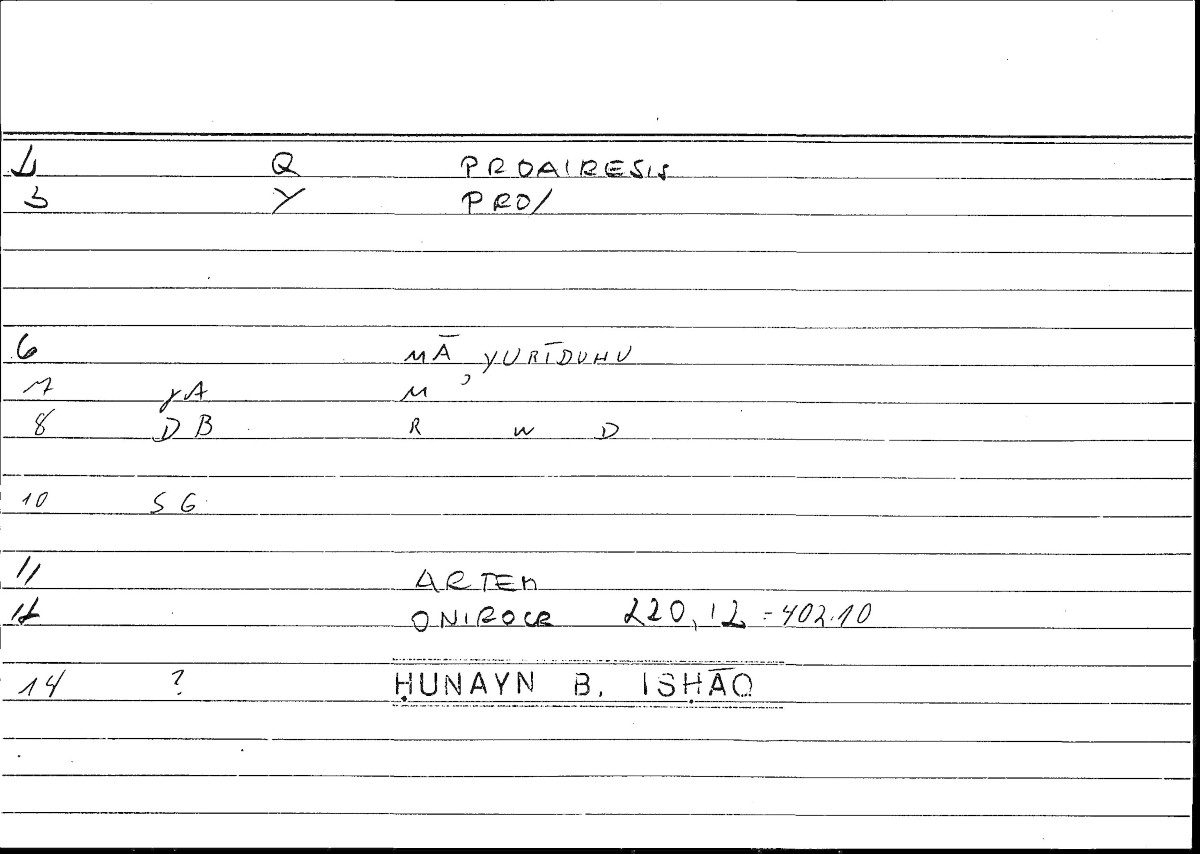 2 Q PROAIRESIS
3 Y PRO/
6 MĀ, YURĪDUHU
7 γA M
8 DB R W D
10 SG
11 ARTEM
12 ONIROCR 220,12 = 402.10
14 ? ḤUNAYN B. ISḤĀQ